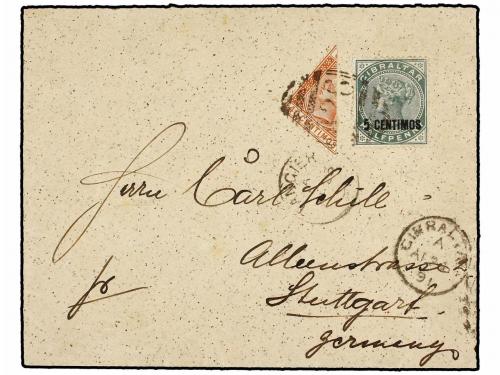 GIBRALTAR
5 CENTIMOS
HALFPENNY
Herrn Carl Schüle
Alleenstrasse
Stuttgart
Germany
GIBRALTAR
A
91